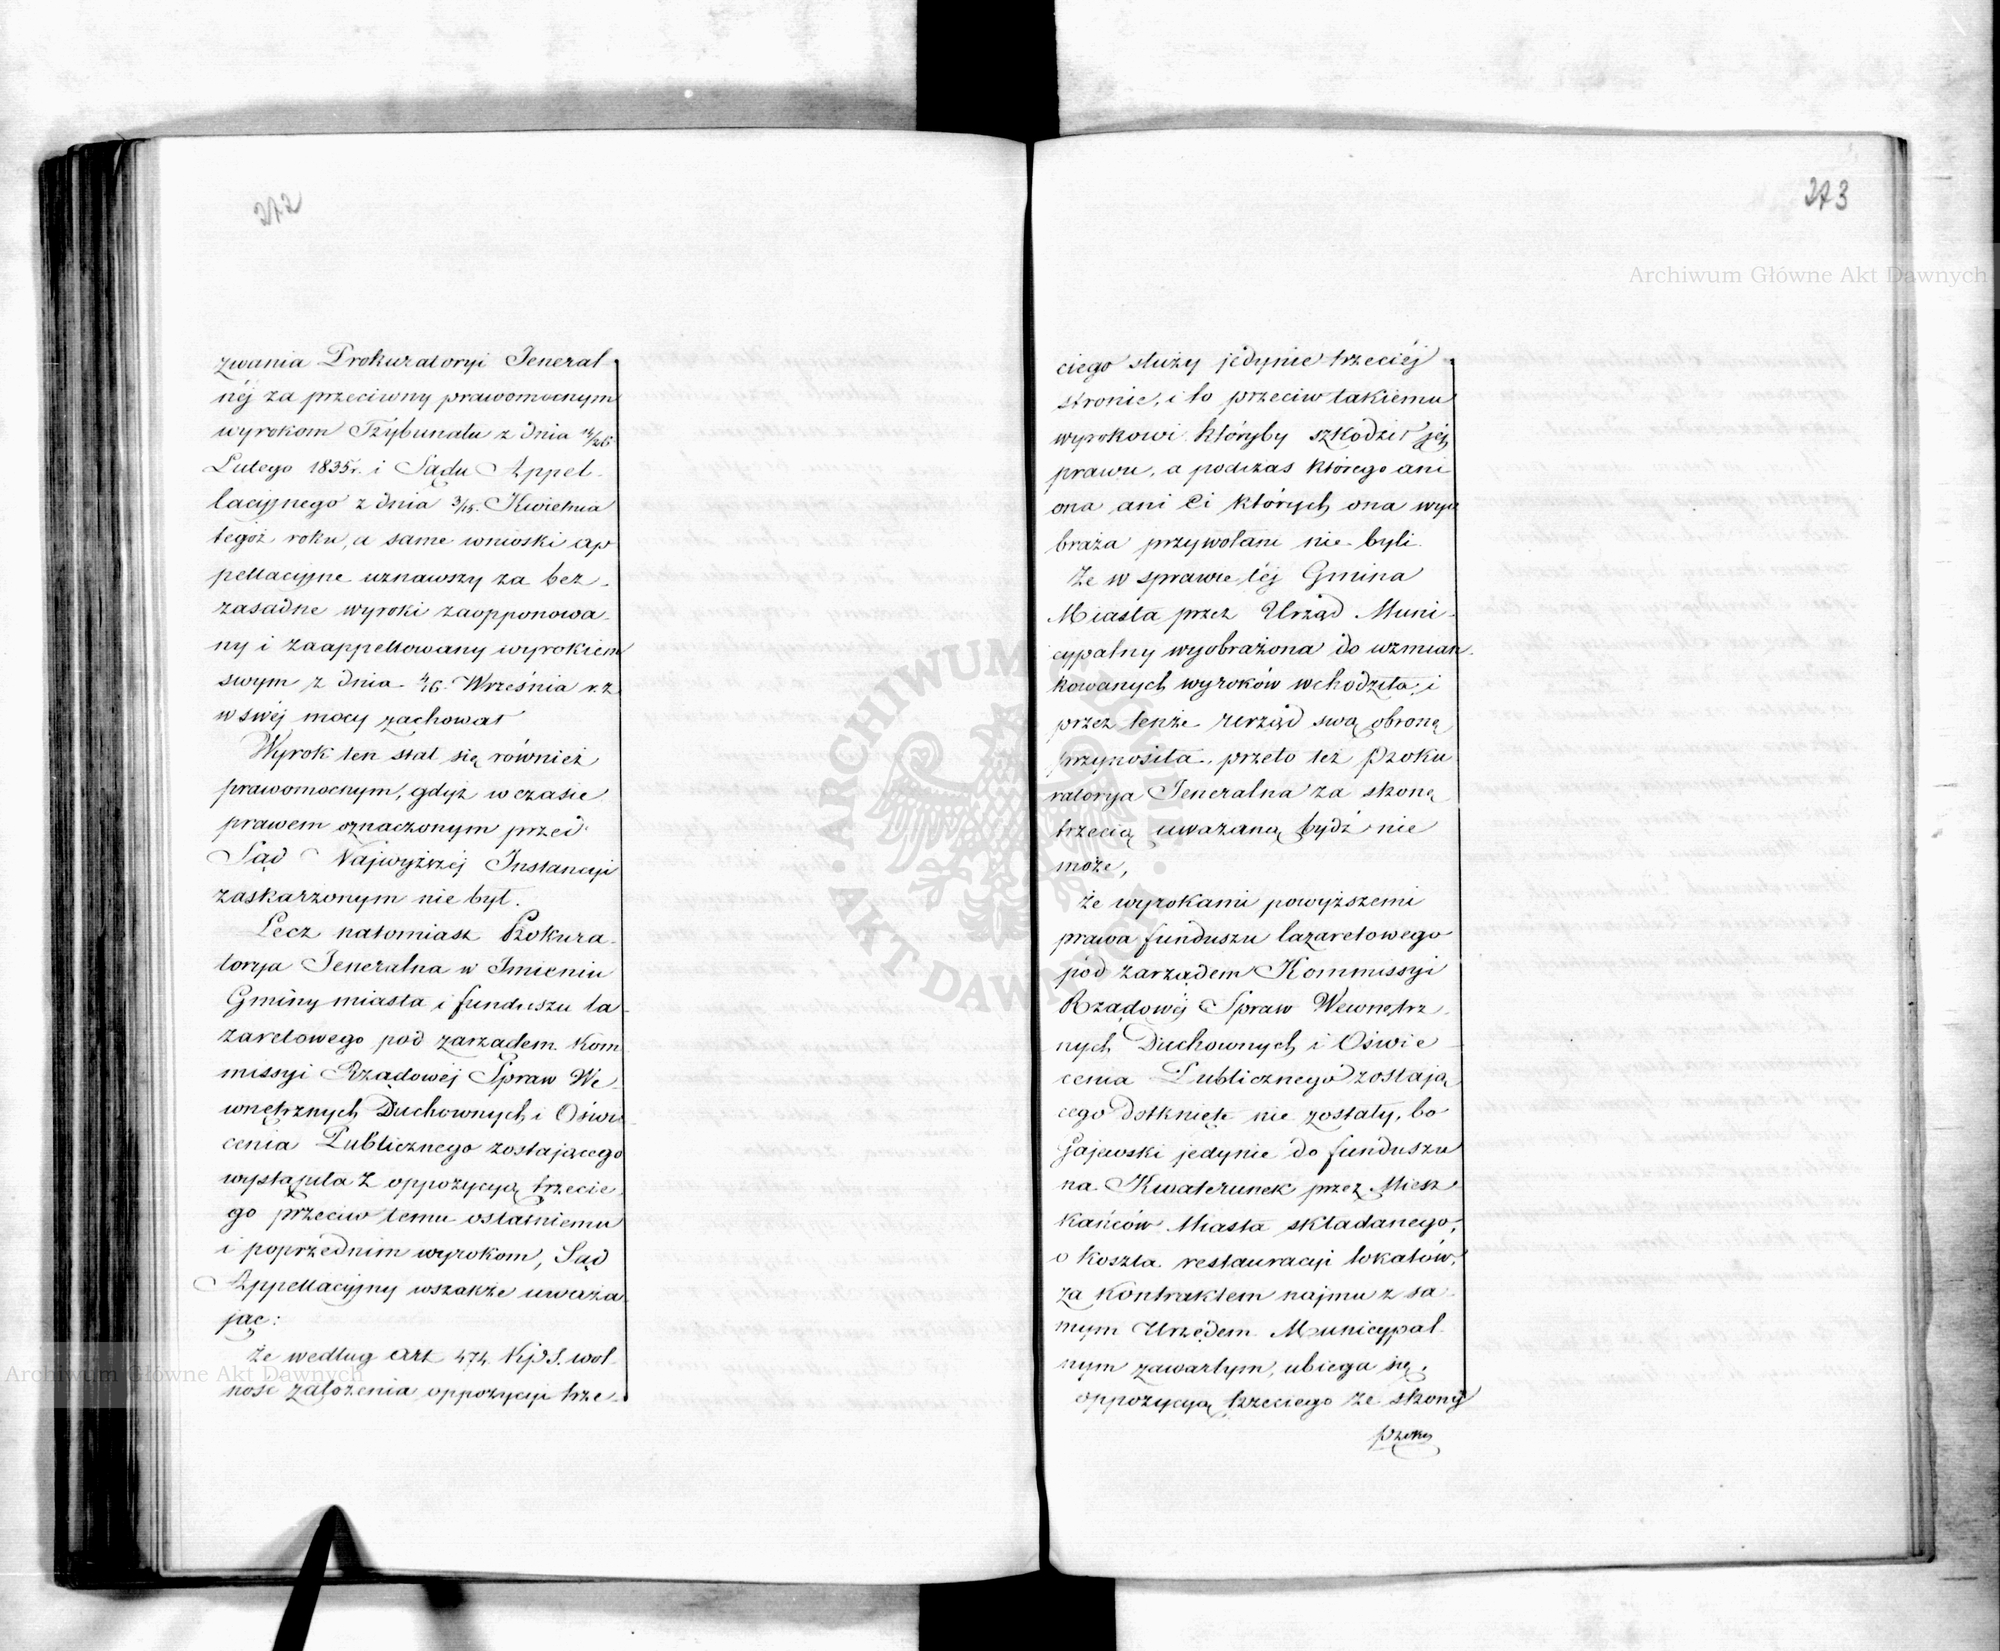 272
zwania Prokuratoryi Jeneral-
néj za przeciwny prawomocnym
wyrokom Trybunału z dnia 14/26
Lutego 1835 r. i Sądu Appel-
lacyjnego z dnia 3/15. Kwietnia
tegoż roku, a same wnioski ap
pellacyjne uznawszy za bez-
zasadne wyroki zaopponowa-
ny i zaappellowany wyrokiem
swym z dnia 4/16. Września r. z
w swéj mocy zachował
Wyrok ten stał się również
prawomocnym, gdyż w czasie
prawem oznaczonym przed
Sąd Najwyższéj Instancyi
zaskarżonym nie był.
Lecz natomiast Prokura-
torya Jeneralna w Imieniu
Gminy miasta i funduszu la-
zaretowego pod zarządem Kom
missyi Rządowéj Spraw We
wnętrznych Duchownych i Oświe
cenia Publicznego zostającego
wystąpiła z oppozycyą trzecie-
go przeciw temu ostatniemu
i poprzednim wyrokom, Sąd
Appellacyjny wszakże uważa-
jąc:
że według art 474 K.p.S. wol-
ność założenia oppozycyi trze-
273
ciego służy jedynie trzeciéj
stronie, i to przeciw takiemu
wyrokowi któryby szkodził jéj
prawu, a podczas którego ani
ona ani Ci których ona wyo
braża przywołani nie byli.
Że w sprawie téj Gmina
Miasta przez Urząd Muni-
cypalny wyobrażona do wzmian-
kowanych wyroków wchodziła, i
przez tenże Urząd swą obronę
przynosiła, przeto też Proku
ratorya Jeneralna za stronę
trzecią uważaną bydź nie
może,
że wyrokami powyższemi
prawa funduszu lazaretowego
pod zarządem Kommissyi
Rządowéj Spraw Wewnętrz-
nych Duchownych i Oświe-
cenia Publicznego zostają
cego dotknięte nie zostały, bo
Gajewski jedynie do funduszu
na Kwaterunek przez Miesz
kańców Miasta składanego,
o koszta restauracyi lokalów,
za kontraktem najmu z sa-
mym Urzędem Municypal-
nym zawartym, ubiega się.
oppozycyą trzeciego ze strony
Proku
Archiwum Główne Akt Dawnych
ARCHIWUM GŁÓWNE · AKT DAWNYCH ·
Archiwum Główne Akt Dawnych